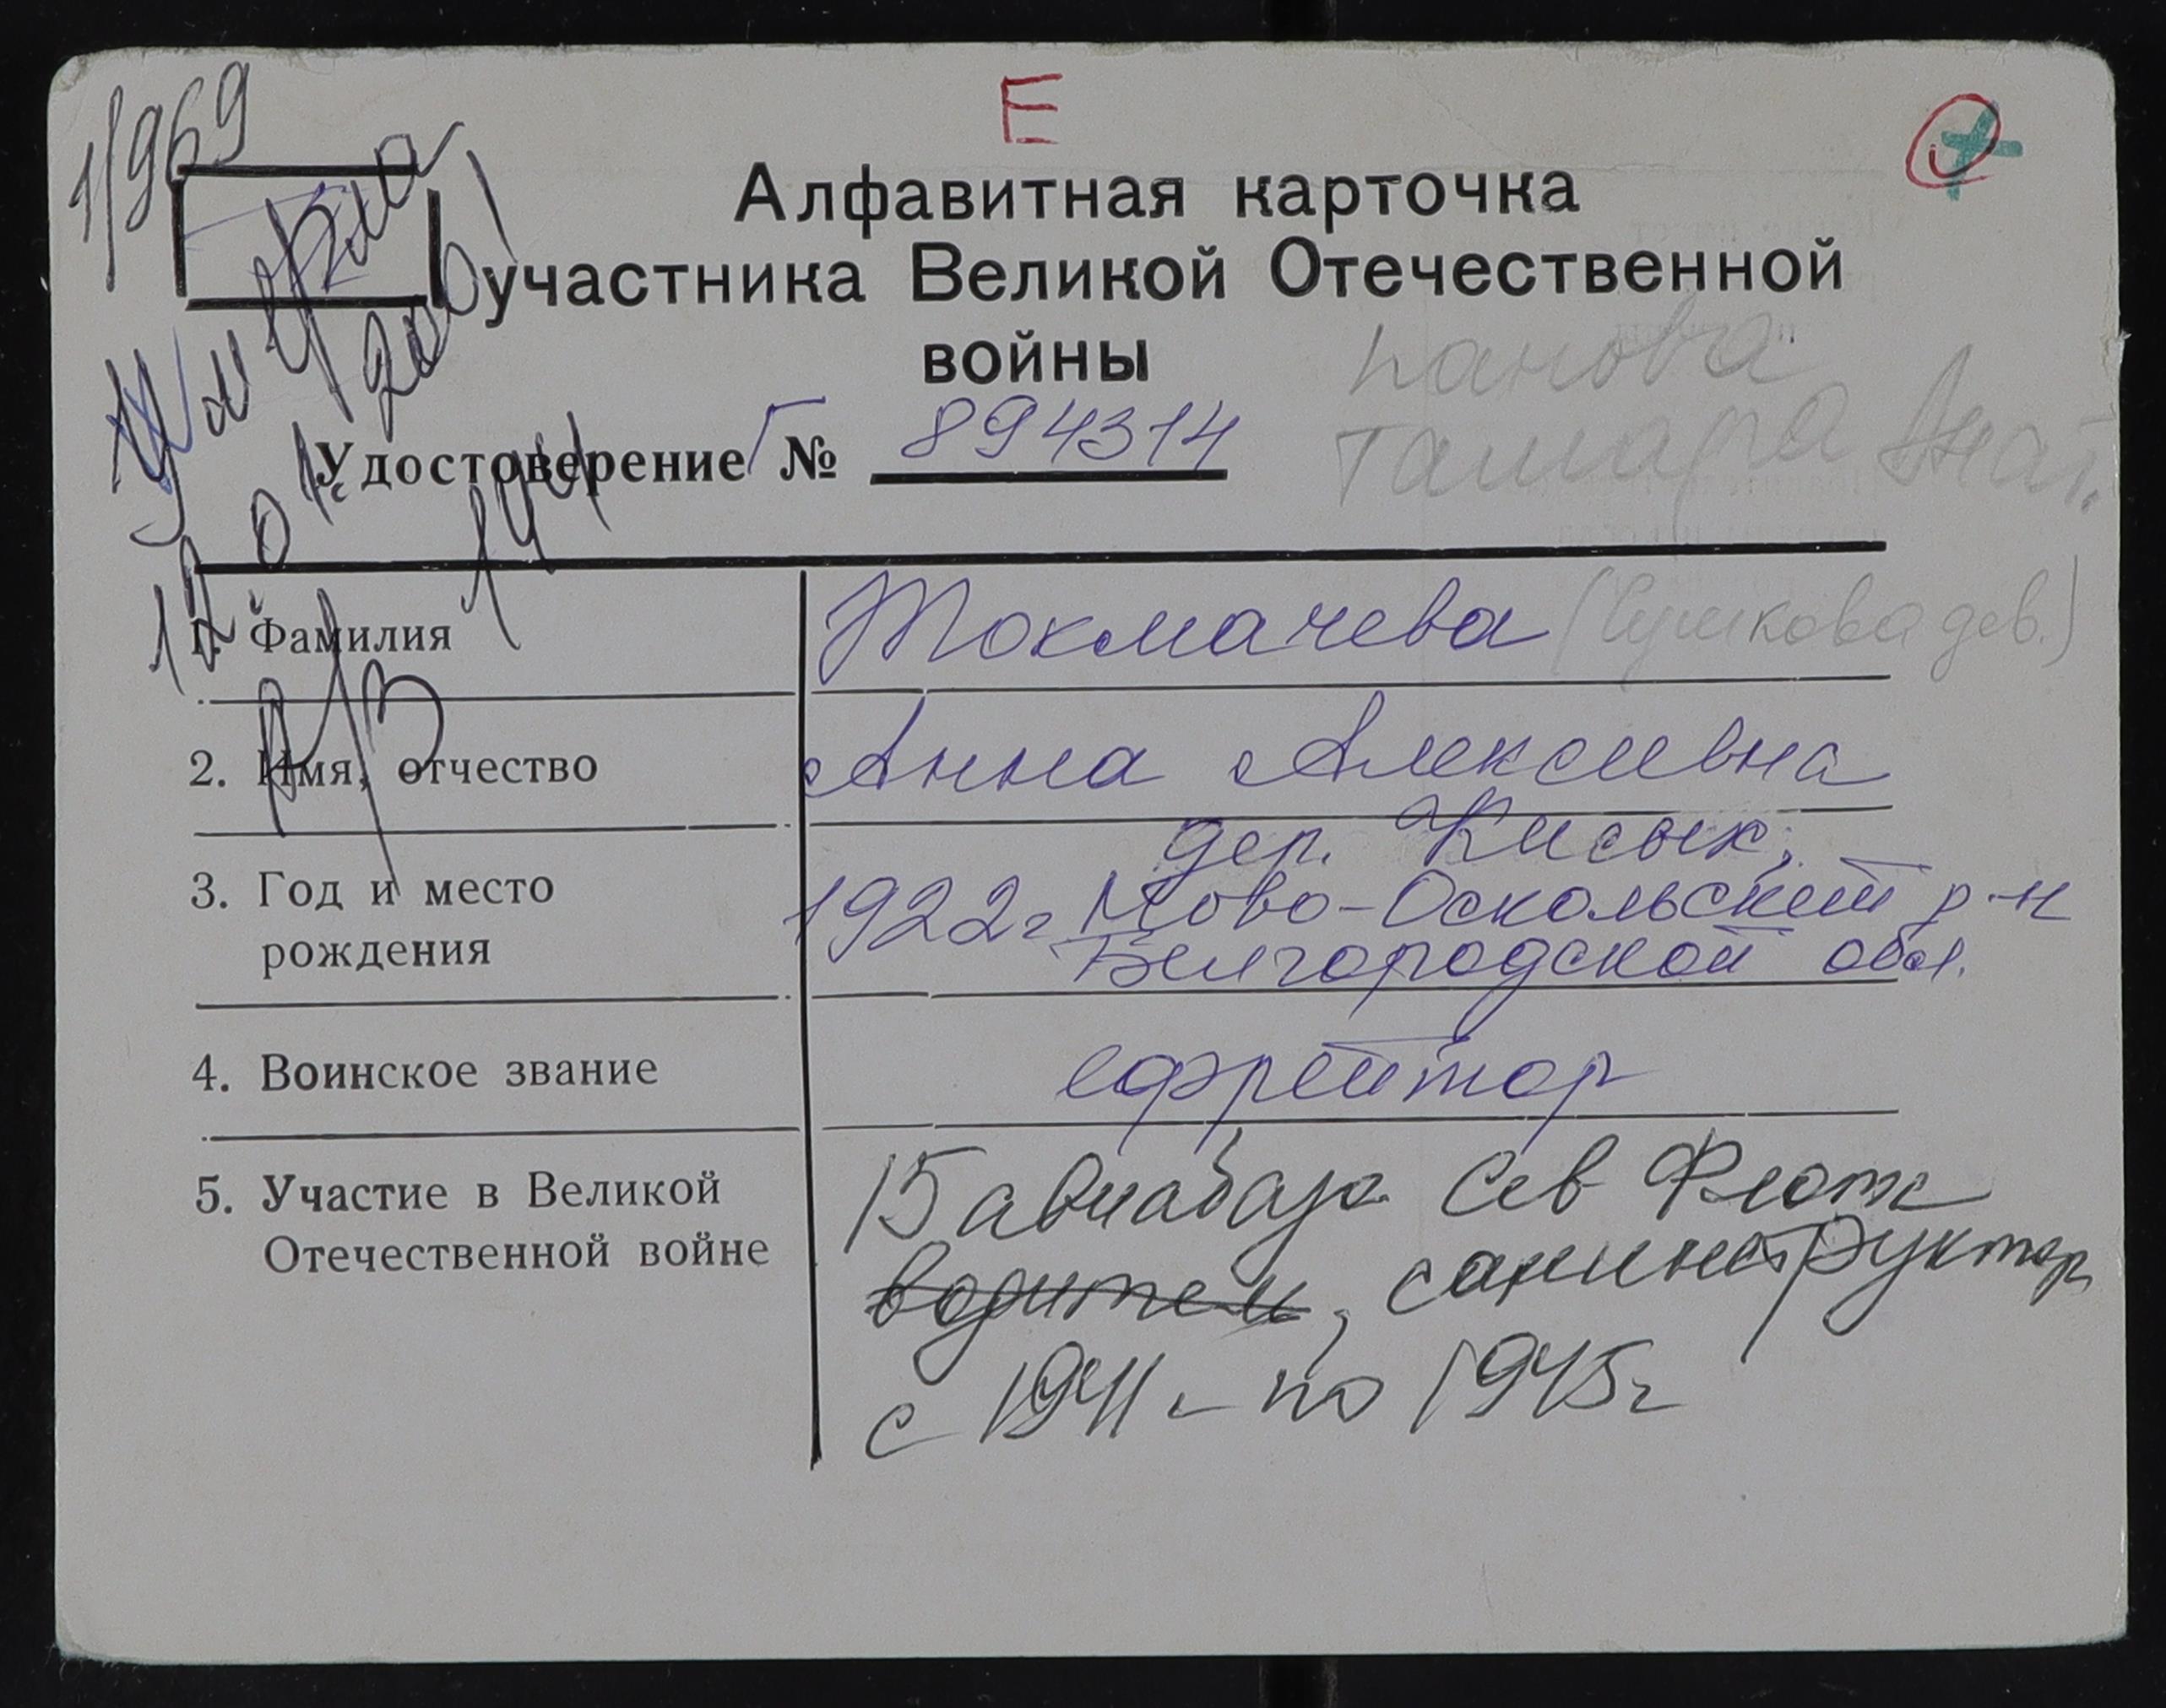 Е
1/969
Алфавитная карточка
участника Великой Отечественной
войны
Панова
Тамара Анат.
Удостоверение Г № 894314
1. Фамилия Токмачева (Сушкова дев.)
2. Имя, отчество Анна Алексеевна
дер. Кисык,
3. Год и место 1922г. Ново-Оскольский р-н
рождения Белгородской обл.
4. Воинское звание ефрейтор
5. Участие в Великой 15 авиабаза Сев Флота
Отечественной войне водитель, санинструктор
с 1941 - по 1945г